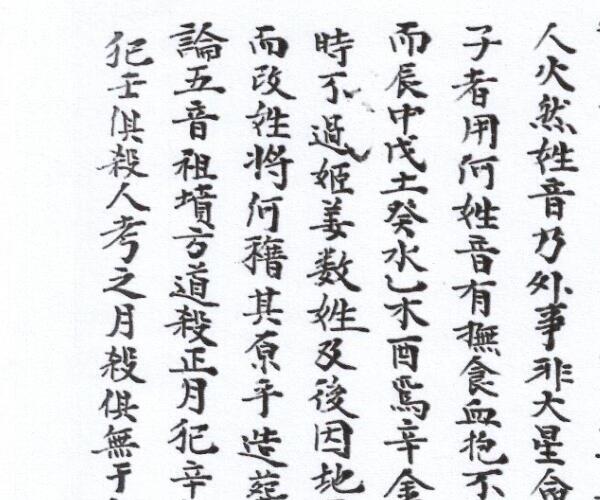 人火然姓音乃外事非大星命
子者用何姓音有撫食血抱不
而辰中戊土癸水乙木酉焉辛金
時不過姬姜数姓及後因地
而改姓将何稽其原乎造葬
論五音祖墳方道殺正月犯辛
犯壬俱殺人考之月殺俱無于